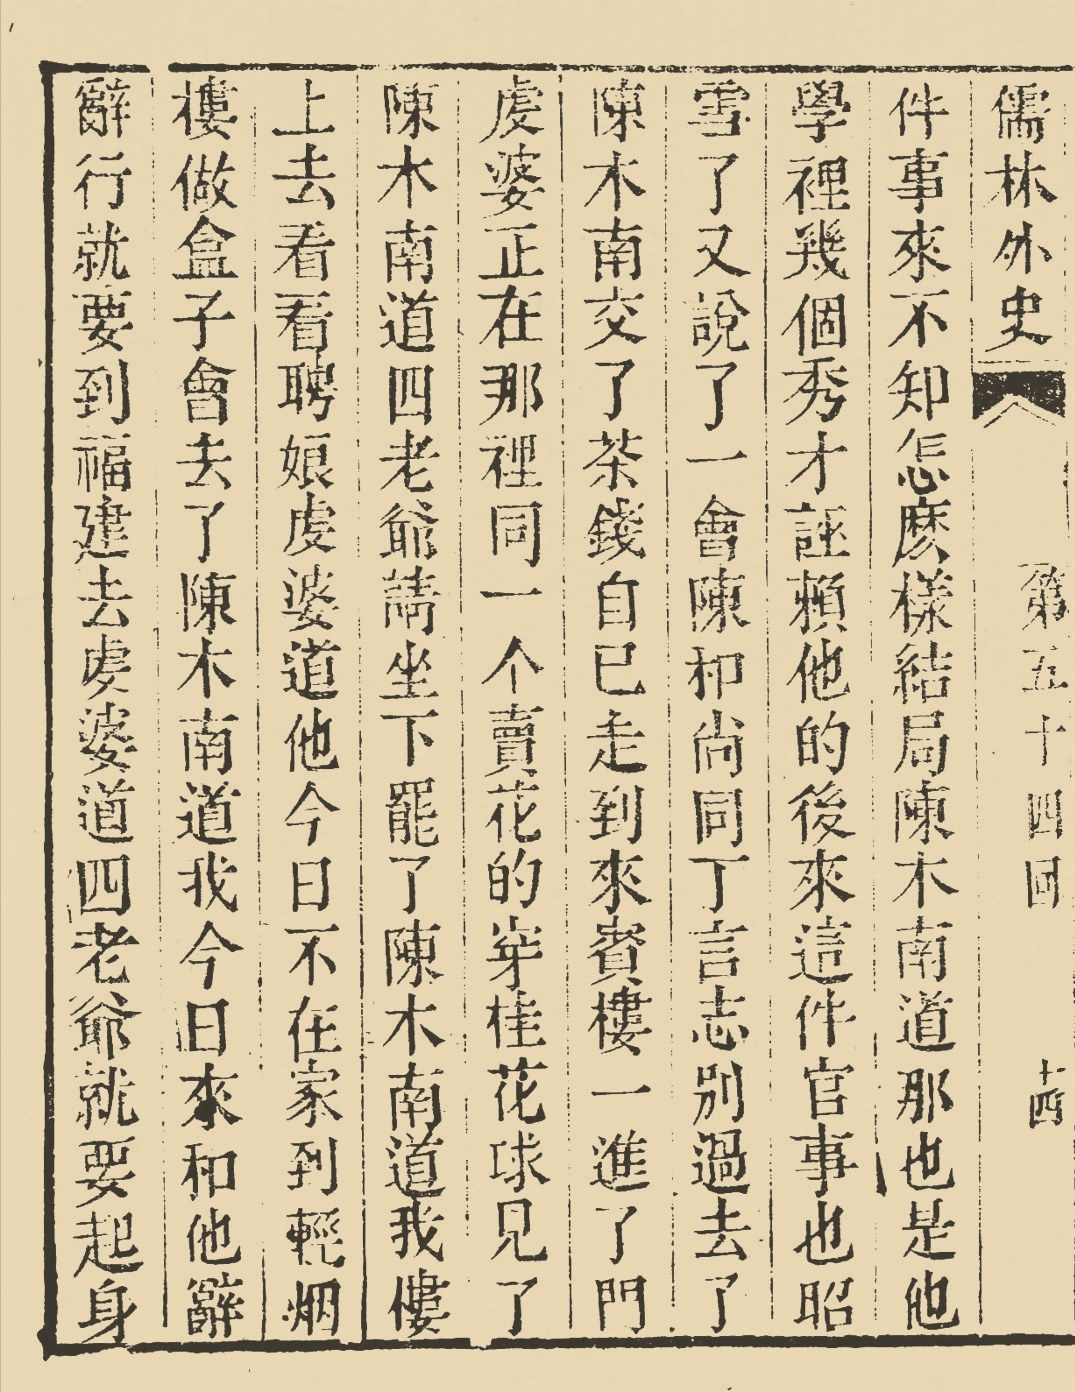 儒林外史 第五十四回 十四
件事來不知怎麽樣結局陳木南道那也是他
學裡幾個秀才誣賴他的後來這件官事也昭
雪了又說了一會陳和尚同丁言志別過去了
陳木南交了茶錢自已走到來賓樓一進了門
虔婆正在那裡同一个賣花的穿桂花球見了
陳木南道四老爺請坐下罷了陳木南道我樓
上去看看聘娘虔婆道他今日不在家到輕烟
樓做盒子會去了陳木南道我今日來和他辭
辭行就要到福建去虔婆道四老爺就要起身